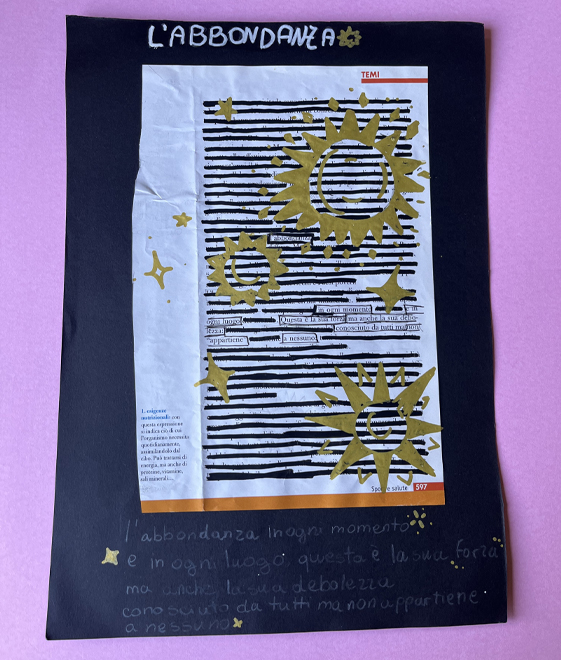 L'ABBONDANZA
TEMI
l'abbondanza
in ogni momento e in
ogni luogo Questa è la sua forza ma anche la sua debo-
lezza: conosciuto da tutti ma non
appartiene a nessuno
1. esigenze
nutrizionali: con
questa espressione
si indica ciò di cui
l'organismo necessita
quotidianamente,
assimilandolo dal
cibo. Può trattarsi di
energia, ma anche di
proteine, vitamine,
sali minerali...
Sport e salute 597
l'abbondanza in ogni momento
e in ogni luogo questa è la sua forza
ma anche la sua debolezza
conosciuto da tutti ma non appartiene
a nessuno